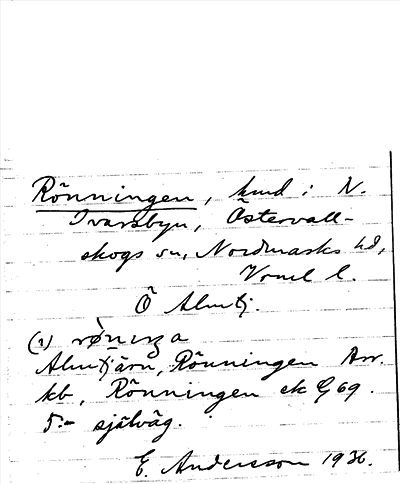 Rönningen, hmd i N.
Ivarsbyn, Östervall-
skogs sn, Nordmarks hd,
Vrml l.
Ö Almtj.
(1)
Almtjärn, Rönningen Arr.
kb, Rönningen ek G 69.
5:- själväg.
E. Andersson 1936.